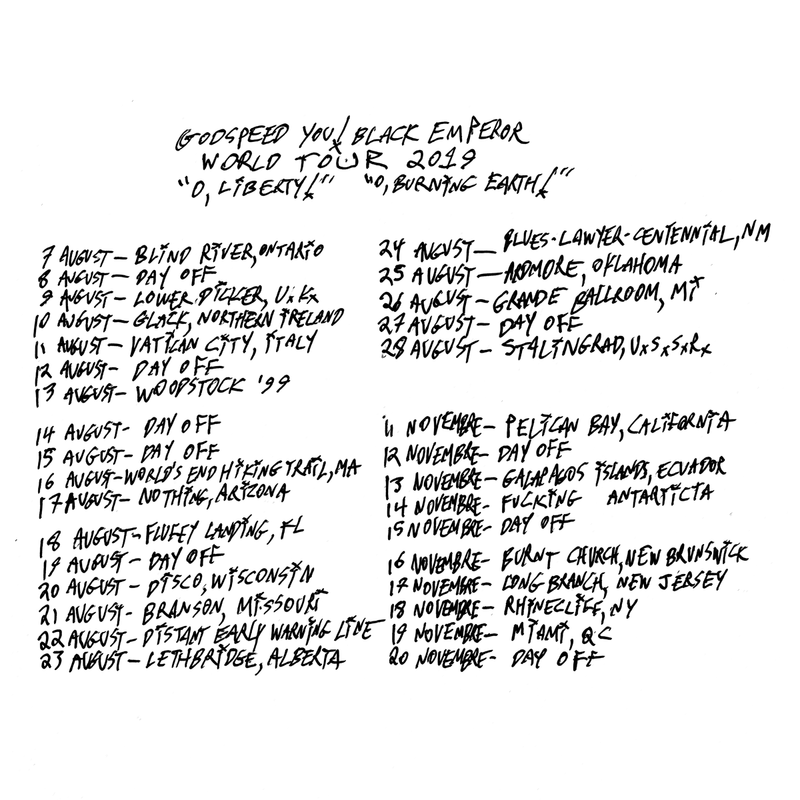 GODSPEED YOU! BLACK EMPEROR
WORLD TOUR 2019
"O, LIBERTY!" "O, BURNING EARTH!"
7 AUGUST- BLIND RIVER, ONTARIO
8 AUGUST- DAY OFF
9 AUGUST- LOWER DICKER, UxKx
10 AUGUST- GLACK, NORTHERN IRELAND
11 AUGUST- VATICAN CITY, ITALY
12 AUGUST- DAY OFF
13 AUGUST- WOODSTOCK '99
14 AUGUST- DAY OFF
15 AUGUST- DAY OFF
16 AUGUST-WORLD'S END HIKING TRAIL, MA
17 AUGUST- NOTHING, ARIZONA
18 AUGUST-FLUFFY LANDING, FL
19 AUGUST- DAY OFF
20 AUGUST- DISCO, WISCONSIN
21 AUGUST- BRANSON, MISSOURI
22 AUGUST- DISTANT EARLY WARNING LINE
23 AUGUST- LETHBRIDGE, ALBERTA
24 AUGUST- BLUES-LAWYER-CENTENNIAL, NM
25 AUGUST- ARDMORE, OKLAHOMA
26 AUGUST- GRANDE BALLROOM, MI
27 AUGUST- DAY OFF
28 AUGUST- STALINGRAD, UxSxSxRx
11 NOVEMBRE- PELICAN BAY, CALIFORNIA
12 NOVEMBRE- DAY OFF
13 NOVEMBRE- GALAPAGOS ISLANDS, ECUADOR
14 NOVEMBRE- FUCKING ANTARTICTA
15 NOVEMBRE- DAY OFF
16 NOVEMBRE- BURNT CHURCH, NEW BRUNSWICK
17 NOVEMBRE- LONG BRANCH, NEW JERSEY
18 NOVEMBRE- RHINECLIFF, NY
19 NOVEMBRE- MIAMI, QC
20 NOVEMBRE- DAY OFF